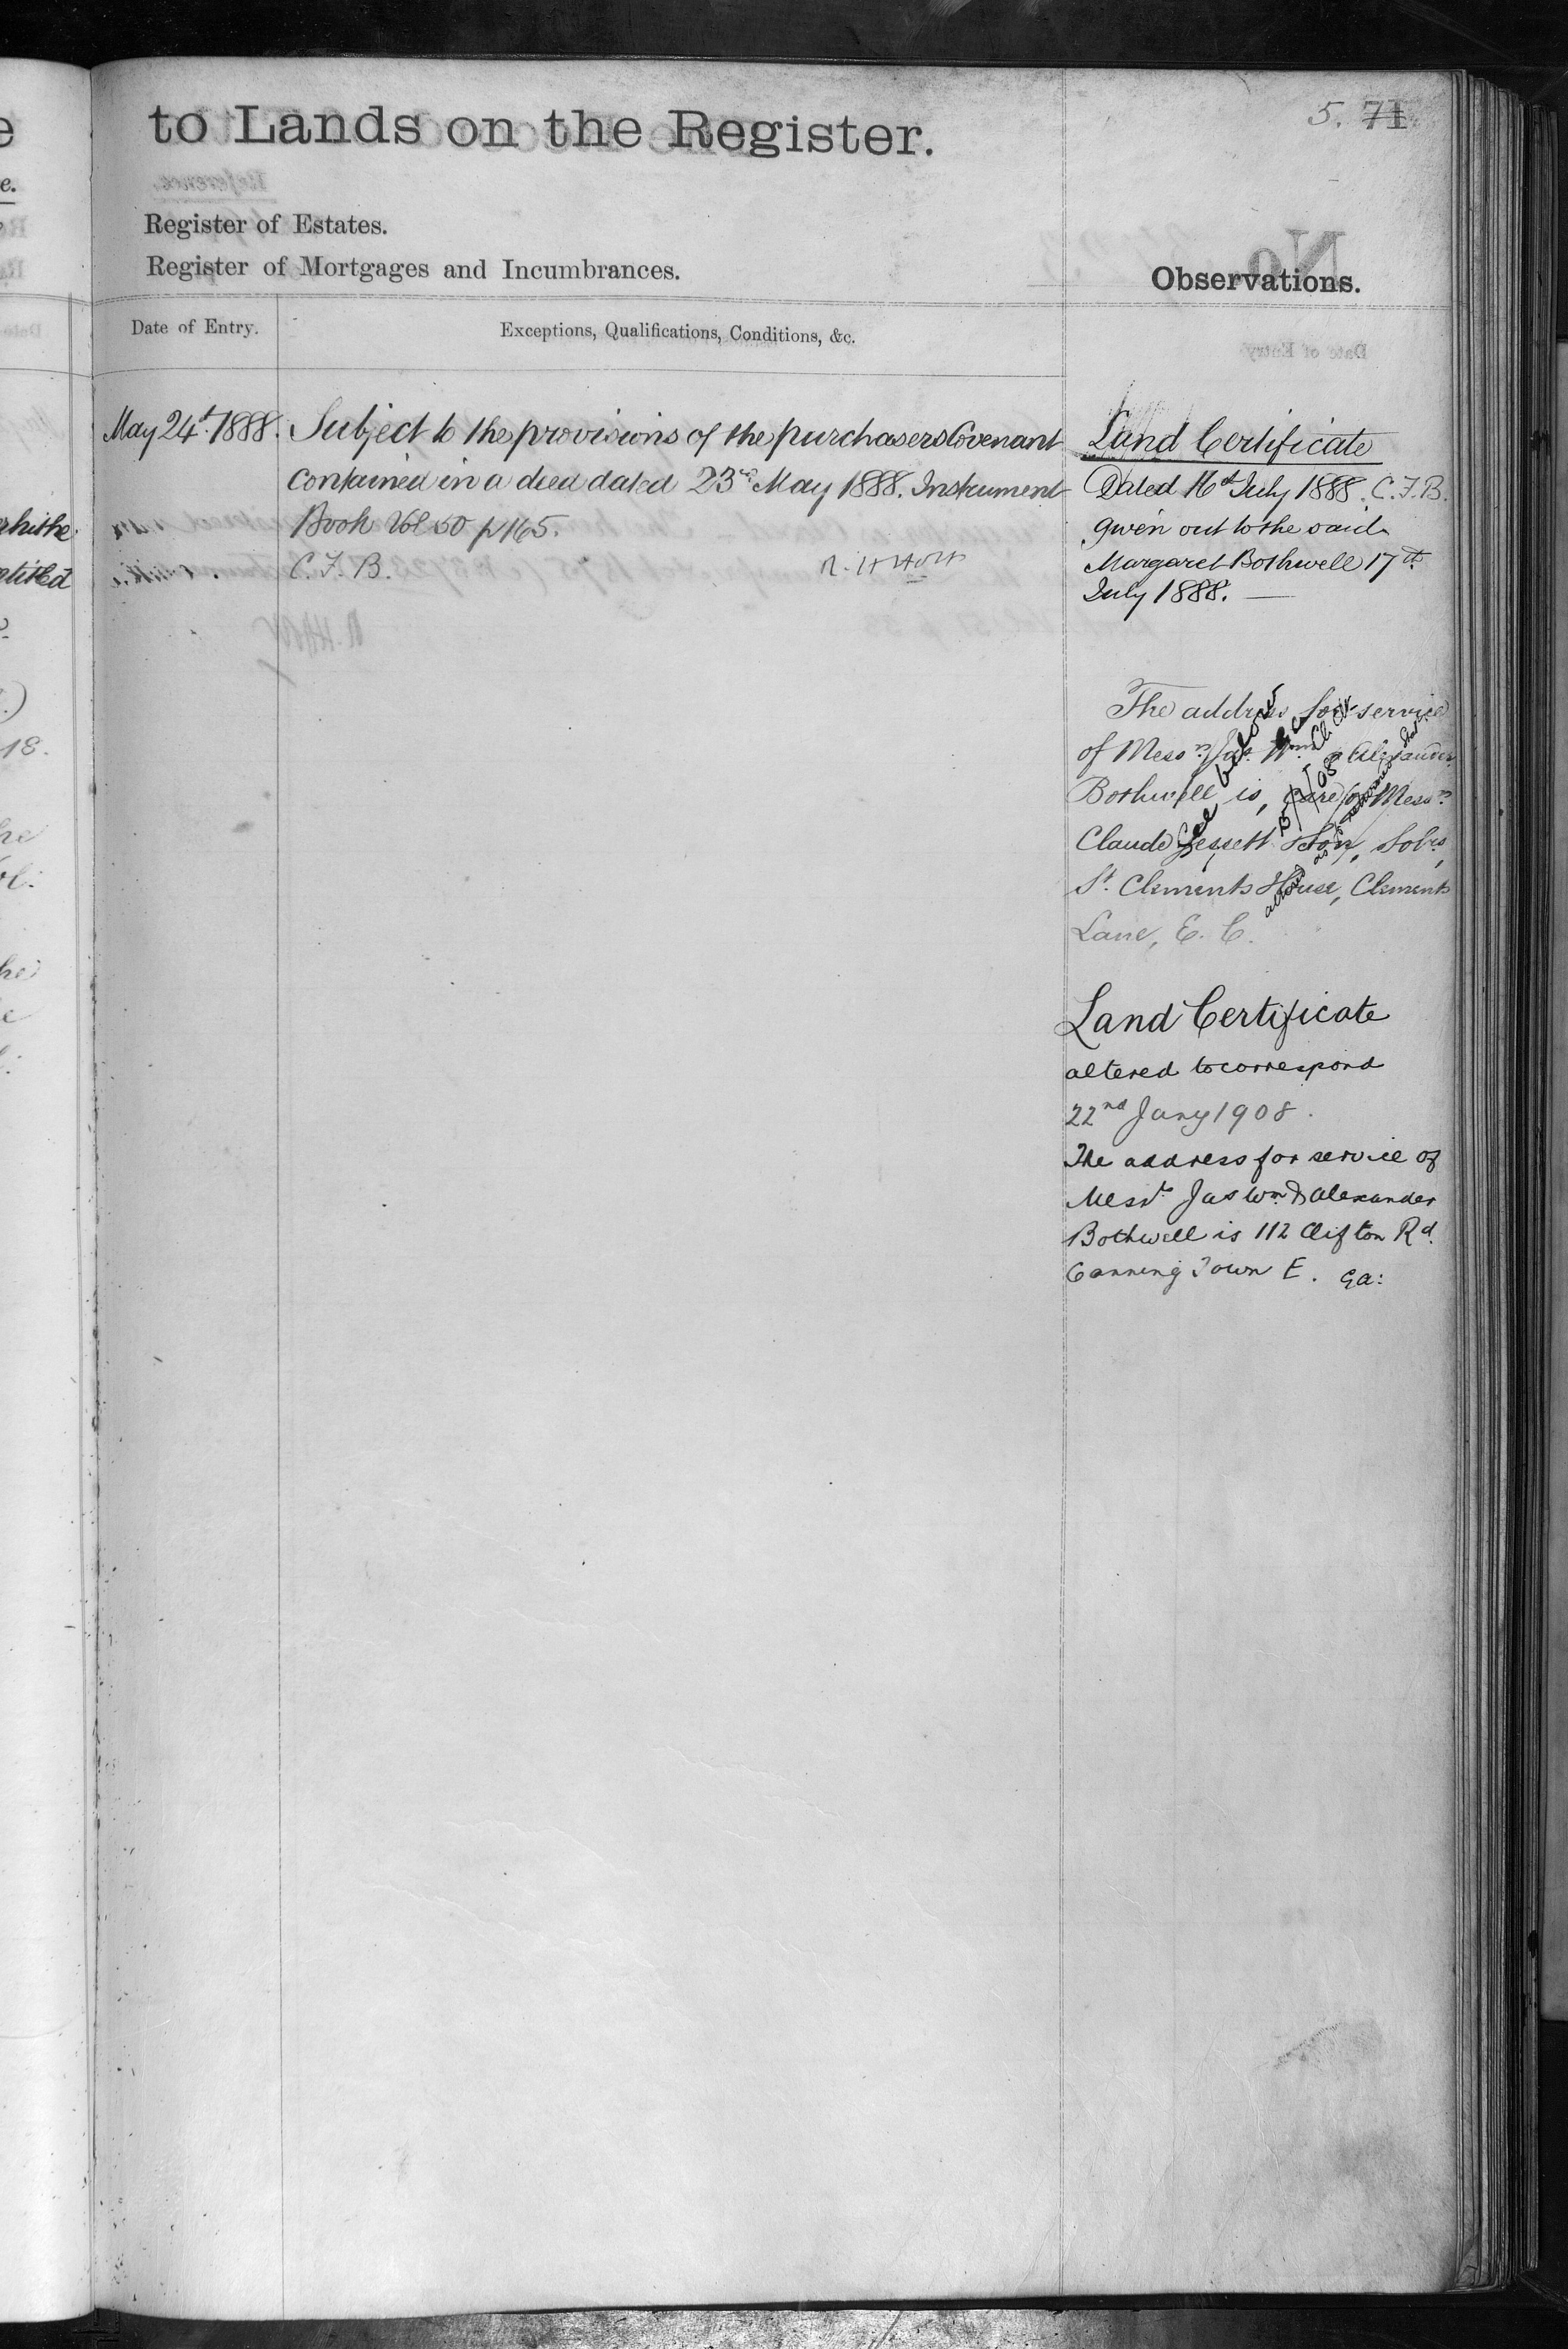 to Lands on the Register.
5. 71
Register of Estates.
Register of Mortgages and Incumbrances.
Observations.
Date of Entry.
Exceptions, Qualifications, Conditions, &c.
May 24th 1888.
Subject to the provisions of the purchasers Covenant
contained in a deed dated 23rd May 1888. Instrument
Book Vol 50 p 165.
C. F. B.
R. H Holt
Land Certificate
Dated 16th July 1888. C. F. B.
given out to the said
Margaret Bothwell 17th
July 1888.
The address for service
of Messrs Jas. Wm & Alexander
Bothwell is, Care of Messrs
Claude &Son, Solrs,
St. Clements House, Clements
Lane, E. C.
See below
Land Certificate
altered to correspond
22nd Jany 1908.
The address for service of
Messrs Jas Wm & Alexander
Bothwell is 112 Clifton Rd.
Canning Town E.